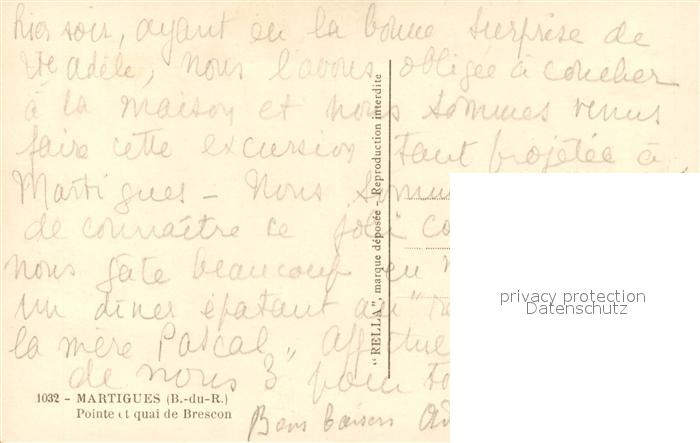 hier soir, ayant eu la bonne surprise de
Adèle, nous l'avons obligée à coucher
à la maison et nous sommes venus
faire cette excursion tant projetée à
Martigues - Nous
de connaître ce joli
nous gâte beaucoup en
un dîner épatant au "
la mère Pascal".
de nous 3 pour
Bons baisers
"RELLA", marque déposée - Reproduction interdite
1032 - MARTIGUES (B.-du-R.)
Pointe et quai de Brescon
privacy protection
Datenschutz